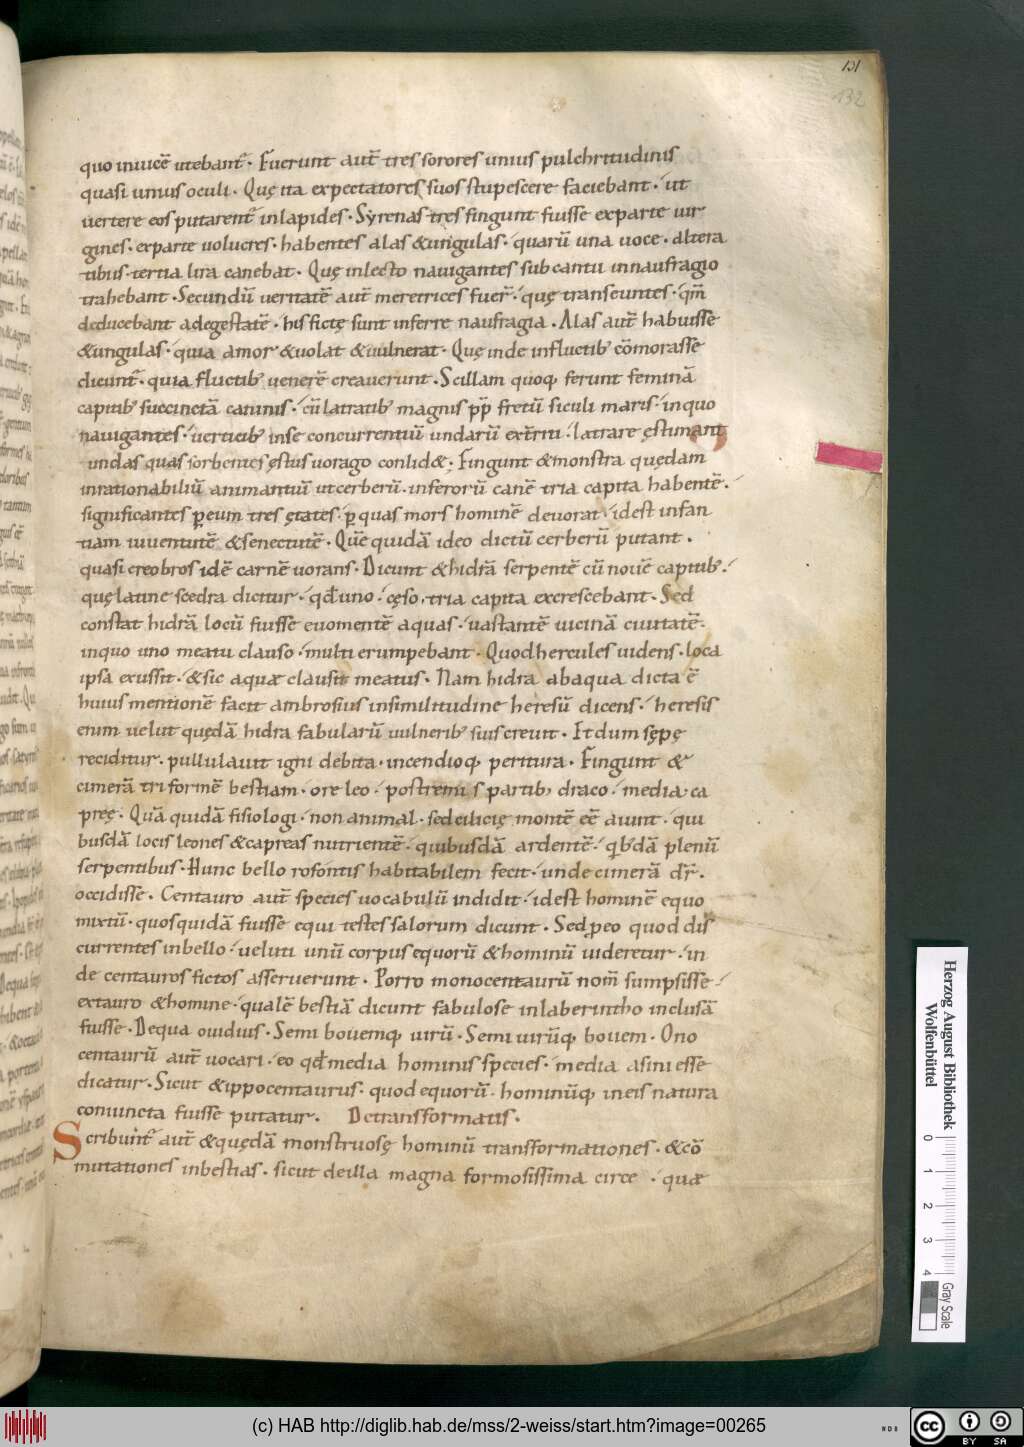 131
132
quo inuicē utebant᷑. Fuerunt aut̄ tres sorores unius pulchritudinis
quasi unius oculi. Quę ita expectatores suos stupescere faciebant. ut
uertere eos putarent᷑ in lapides. Syrenas tres fingunt fuisse exparte uir
gines. exparte uolucres. habentes alas &ungulas. quarū una uoce. altera
tibus. tertia lira canebat. Quę inlecto nauigantes sub cantu innaufragio
trahebant. Secundū ueritatē aut̄ meretrices fuer̄. quę transeuntes. qm̄
deducebant adegestatē. his fictę sunt inferre naufragia. Alas aut̄ habuisse
&ungulas. quia amor &uolat &uulnerat. Quę inde influctib; cōmorasse
dicunt᷑. quia fluctib; uenerē creauerunt. Scillam quoq; ferunt feminā
capitib; succinctā caninis. cū latratib; magnis pp̄ fretū siculi maris. inquo
nauigantes. uerticib; inse concurrentiū undarū ext̄riti. latrare ęstimant
undas quas sorbentes ęstus uorago conlid&. Fingunt &monstra quędam
inrationabiliū animantiū ut cerberū. inferorū canē tria capita habentē.
significantes ꝑ eum tres ętates. ꝑ quas mors hominē deuorat. idest infan
tiam iuuentutē &senectutē. Quē quidā ideo dictū cerberū putant.
quasi creobros idē carnē uorans. Dicunt &hidrā serpentē cū nouē capitib;.
quę latine scedra dicitur. qđ uno. cęso. tria capita excrescebant. Sed
constat hidrā locū fuisse euomentē aquas. uastantē uicinā ciuitatē.
inquo uno meatu clauso. multi erumpebant. Quod hercules uidens. loca
ipsa exussit. &sic aquæ clausit meatus. Nam hidra abaqua dicta ē
huius mentionē facit ambrosius insimilitudine heresū dicens. heresis
enim uelut quędā hidra fabularū uulnerib; suis creuit. Et dum sępę
reciditur. pullulauit igni debita. incendioq; peritura. Fingunt &
cimerā triformē bestiam. ore leo. postremis partib; draco. media. ca
preę. Quā quidā fisiologi. non animal. sed cilicię montē eē aiunt. qui
busdā locis leones &capreas nutrientē. quibusdā ardentē. qb'dā plenū
serpentibus. Hunc bello rofontis habitabilem fecit. unde cimerā dr̄.
occidisse. Centauro aut̄ species uocabulū indidit. idest hominē equo
mixtū. quos quidā fuisse equites tessalorum dicunt. Sed ꝑeo quod dis
currentes inbello. ueluti unū corpus equorū &hominū uideretur. in
de centauros fictos asseruerunt. Porro monocentaurū nom̄ sumpsisse.
extauro &homine. qualē bestiā dicunt fabulose inlaberintho inclusā
fuisse. Dequa ouidius. Semi bouemq; uirū. Semi uirūq; bouem. Ono
centaurū aut̄ uocari. eo qđ media hominis species. media asini esse
dicatur. Sicut &ippocentaurus. quod equorū. hominūq; ineis natura
coniuncta fuisse putatur. De transformatis.
Scribunt᷑ aut̄ &quędā monstruosę hominū transformationes. &cō
mutationes inbestias. sicut deilla magna formosissima circe. quæ
Herzog August Bibliothek
Wolfenbüttel
0 1 2 3 4
Gray Scale
(c) HAB http://diglib.hab.de/mss/2-weiss/start.htm?image=00265
WDB
cc BY SA